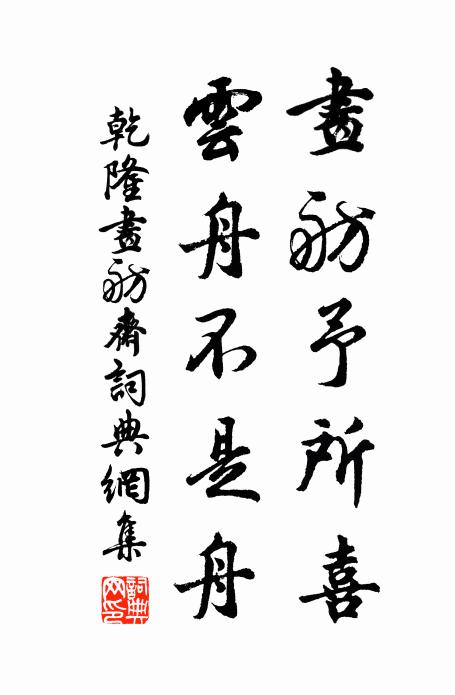 畫舫予所喜
雲舟不是舟
乾隆畫舫齋詞典網集
詞典網印